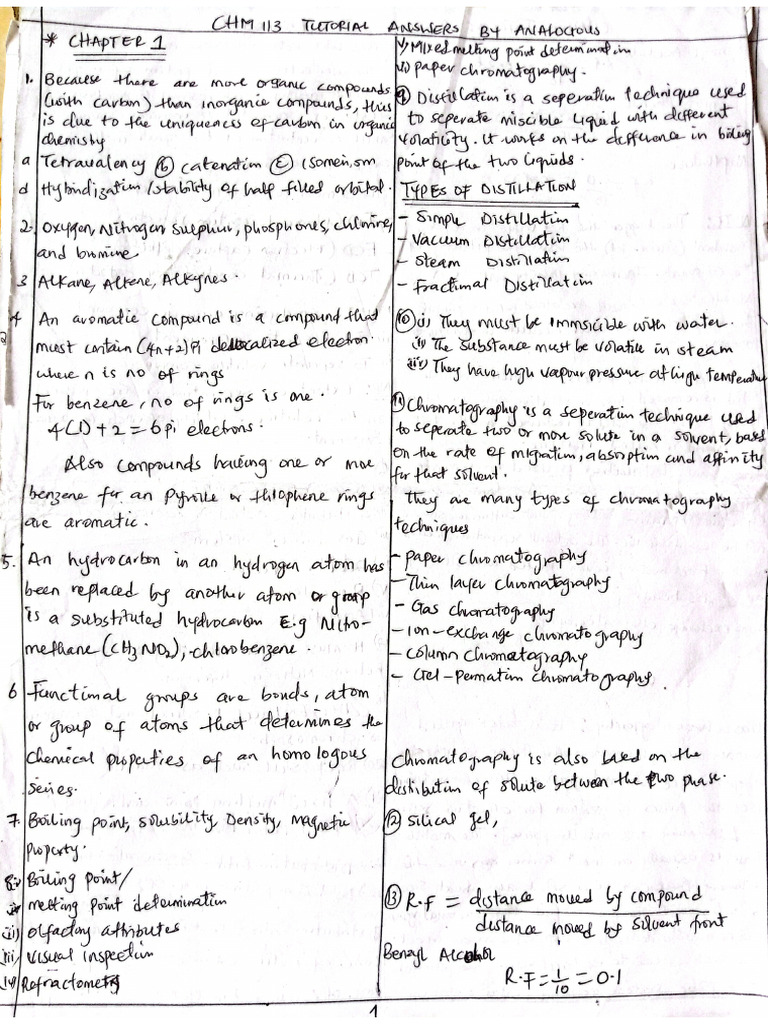 CHM 113 TUTORIAL ANSWERS BY ANALOCIOUS
* CHAPTER 1
1. Because there are more organic compounds
(with carbon) than inorganic compounds, this
is due to the uniqueness of carbon in organic
chemistry
a Tetravalency (b) catenation (c) isomerism
d Hybridization/stability of half filled orbital.
2. Oxygen, Nitrogen, Sulphur, phosphorus, chlorine,
and bromine
3 Alkane, Alkene, Alkynes.
4 An aromatic compound is a compound that
must contain (4n+2)Pi dellocalized electron.
where n is no of rings
For benzene, no of rings is one.
4(1)+2 = 6 pi electrons.
Also compounds having one or more
benzene for an pyrrole or thiophene rings
are aromatic.
5. An hydrocarbon in an hydrogen atom has
been replaced by another atom or group
is a substituted hydrocarbon E.g Nitro-
methane (CH3NO2), chlorobenzene.
6 Functional groups are bonds, atom
or group of atoms that determines the
Chemical properties of an homologous
series.
7. Boiling point, solubility, Density, magnetic
property.
8.i) Boiling point/
melting point determination
ii) olfactory attributes
iii) visual inspection
iv) Refractometry
v) Mixed melting point determination
vi) paper chromatography.
(9) Distillation is a seperation technique used
to seperate miscible liquid with different
volaticity. it works on the difference in boiling
point of the two liquids.
TYPES OF DISTILLATION
- Simple Distillation
- Vacuum Distillation
- Steam Distillation
- Fractional Distillation
(10) i) They must be immiscible with water.
ii) The substance must be volatile in steam
iii) They have high vapour pressure at high temperature
(11) Chromatography is a seperation technique used
to seperate two or more solute in a solvent, based
on the rate of migration, absorption and affinity
for that solvent.
They are many types of chromatography
techniques
- Paper chromatography
- Thin layer chromatography
- Gas chromatography
- Ion-exchange chromatography
- Column chromatography
- Gel-Permation chromatography
Chromatography is also based on the
distribution of solute between the two phase.
(12) Silical gel,
(13) R.F = distance moved by compound
distance moved by solvent front
Benzyl Alcohol
R.F = 1/10 = 0.1
1